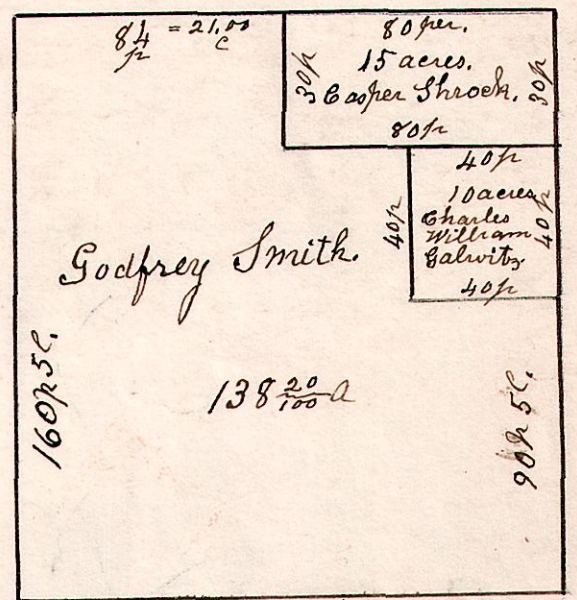 84 = 21.00
p c
80 per.
15 acres.
30p
Casper Shrock.
30p
80p
40p
10 acres
40p
Charles
William
Galwitz.
40p
40p
Godfrey Smith.
138 20/100 a
160p 5l.
90p 5l.